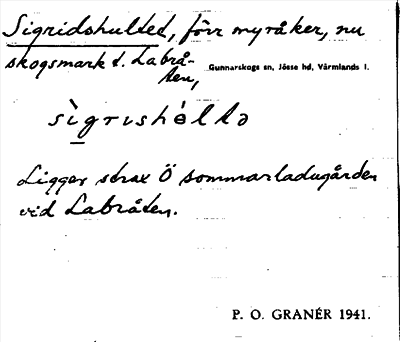 Sigridshultet, förr myråker, nu
skogsmark t. Labrå-
ten,
Gunnarskogs sn, Jösse hd, Värmlands l.
sìgrishélltə
Ligger strax Ö sommarladugården
vid Labråten.
P. O. GRANÉR 1941.